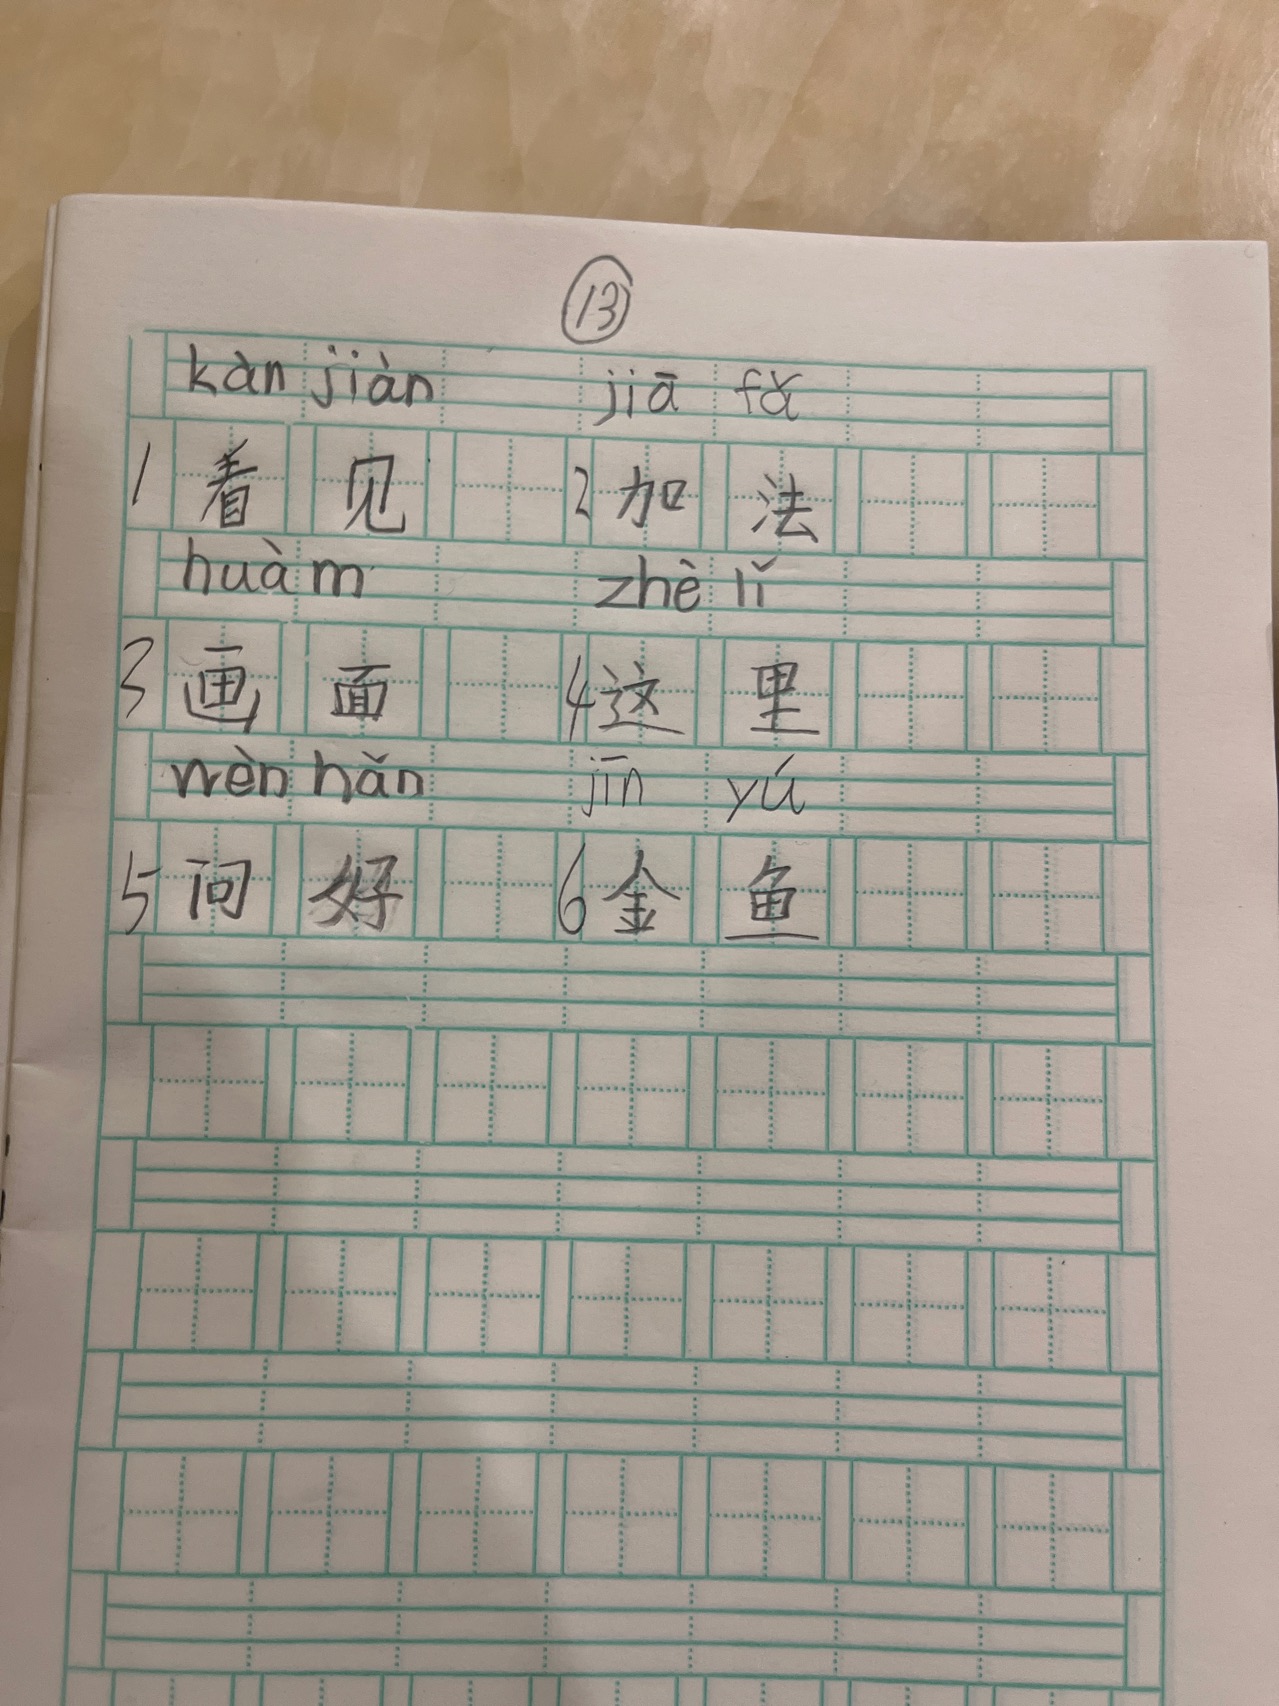 13
kàn jiàn jiā fǎ
1 看 见 2 加 法
huà m zhè lǐ
3 画 面 4 这 里
wèn hǎn jīn yú
5 问 好 6 金 鱼